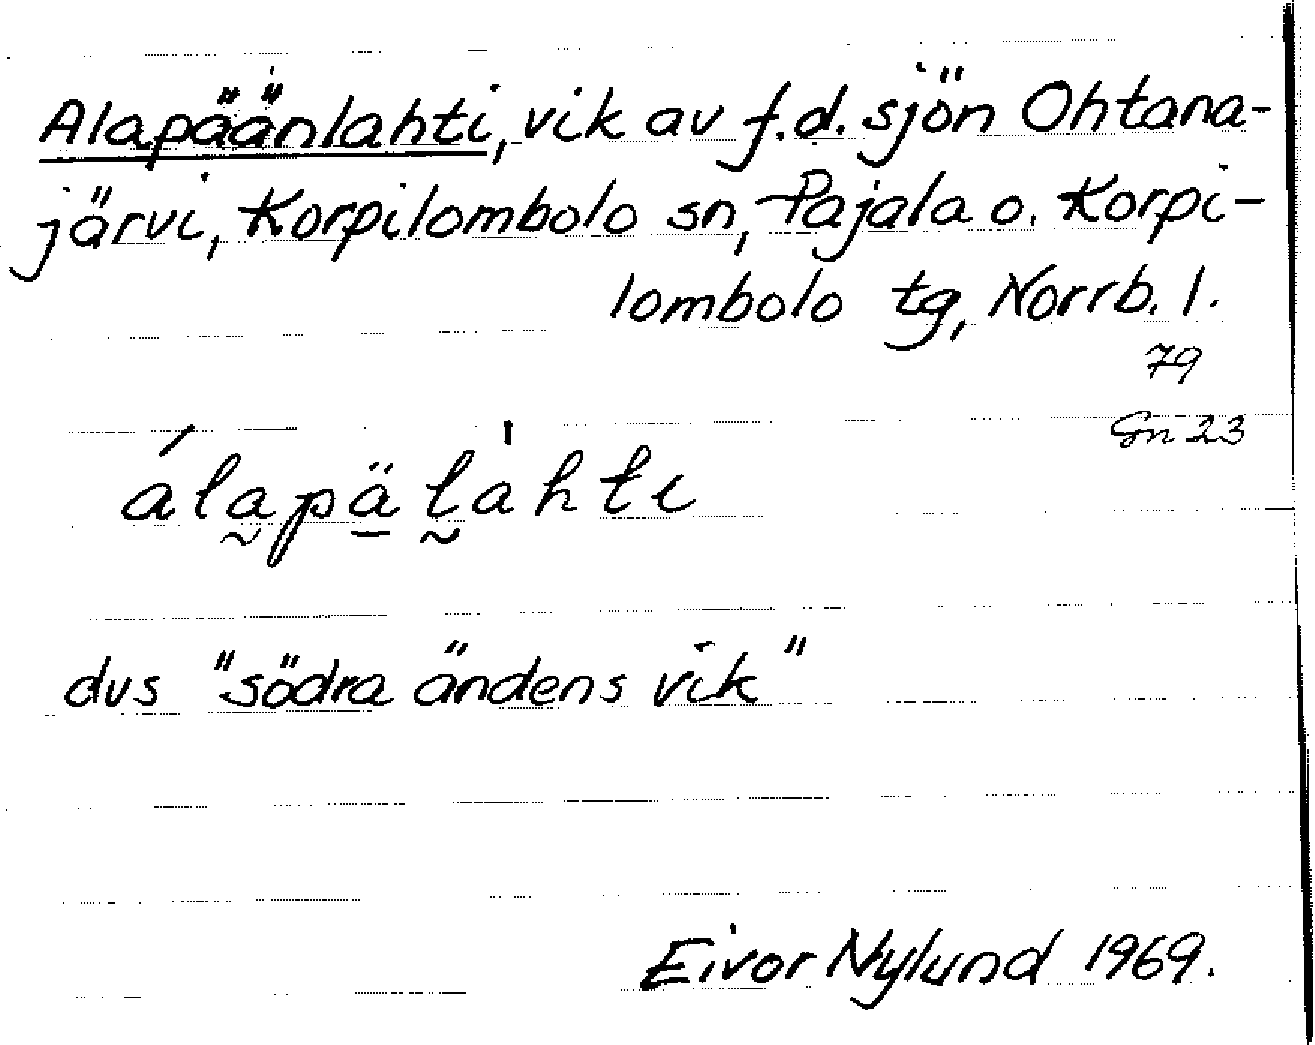 Alapäänlahti, vik av f.d. sjön Ohtana-
järvi, Korpilombolo sn, Pajala o. Korpi-
lombolo tg, Norrb. l.
79
Gn 23
álapä̱l̰àhti
dvs "södra ändens vik"
Eivor Nylund 1969.